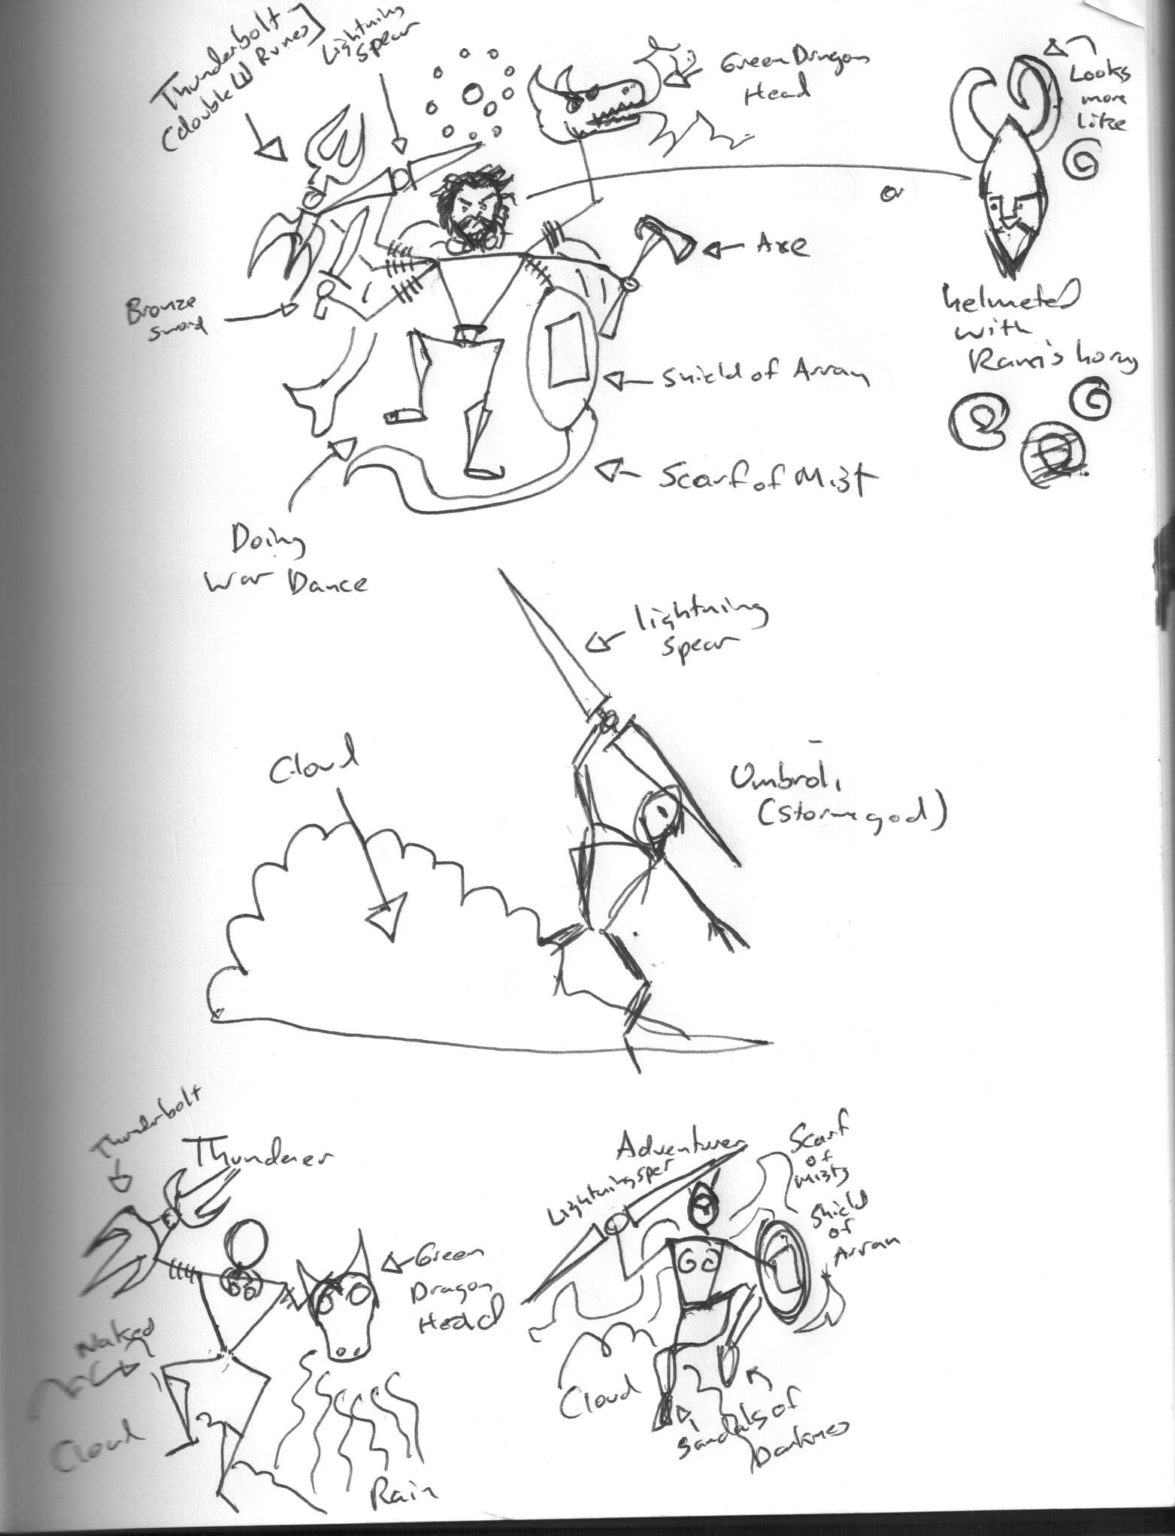 Thunderbolt
(double W Runes)
Lightning
Spear
Green Dragon
Head
Looks
more
like
or
Axe
Bronze
sword
helmeted
with
Ram's horns
Shield of Arran
Scarf of Mist
Doing
War Dance
lightning
spear
Cloud
Umbroli
(storm god)
Thunderbolt
Thunderer
Green
Dragon
Head
Naked
Cloud
Rain
Adventurer
Lightningspear
Scarf
of
Mists
Shield
of
Arran
Cloud
Sandals of
Darkness